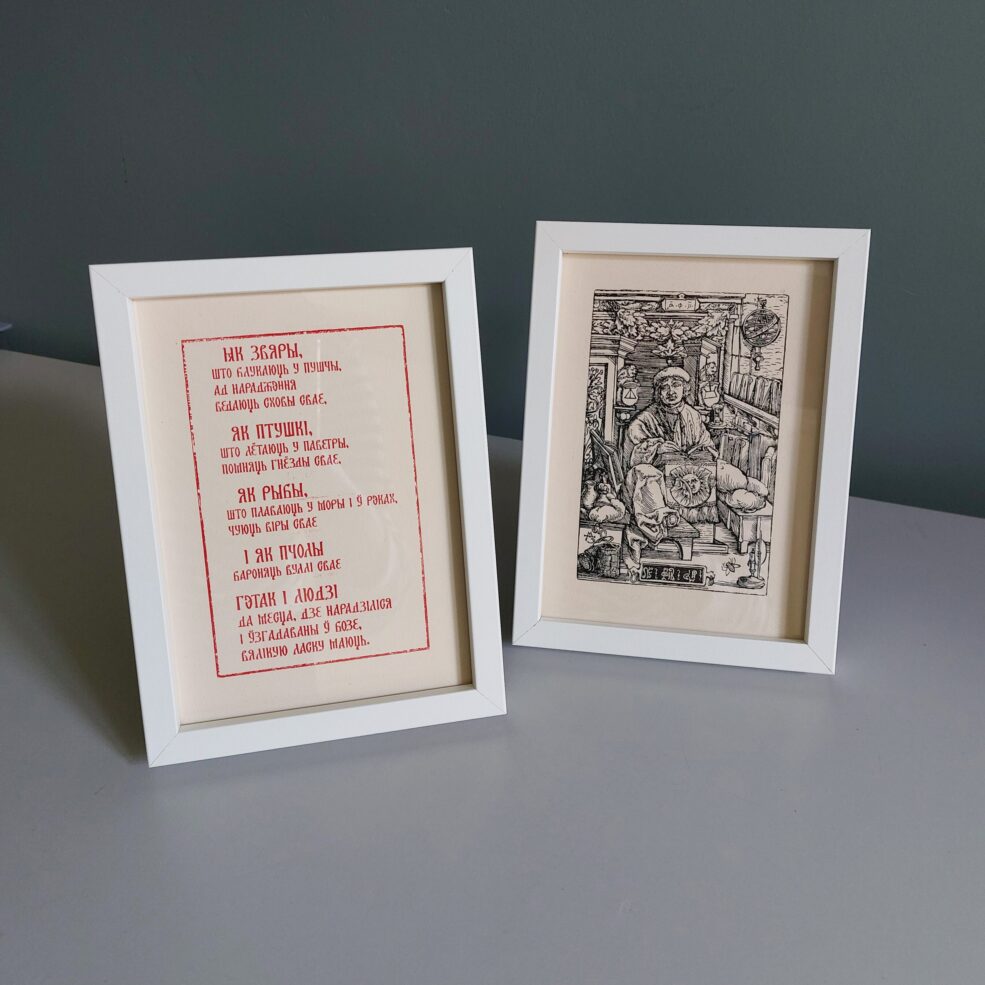 ЫК ЗВЯРЫ,
ШТО БЛУКАЮЦЬ У ПУШЧЫ,
АД НАРАДЖЭННЯ
ВЕДАЮЦЬ СХОВЫ СВАЕ,
ЯК ПТУШКІ,
ШТО ЛЁТАЮЦЬ У ПАВЕТРЫ,
ПОМНЯЦЬ ГНЁЗДЫ СВАЕ,
ЯК РЫБЫ,
ШТО ПЛАВАЮЦЬ У МОРЫ І Ў РЭКАХ,
ЧУЮЦЬ ВІРЫ СВАЕ
І ЯК ПЧОЛЫ
БАРОНЯЦЬ ВУЛЛІ СВАЕ
ГЭТАК І ЛЮДЗІ
ДА МЕСЦА, ДЗЕ НАРАДЗІЛІСЯ
І ЎЗГАДАВАНЫ Ў БОЗЕ,
ВЯЛІКУЮ ЛАСКУ МАЮЦЬ.